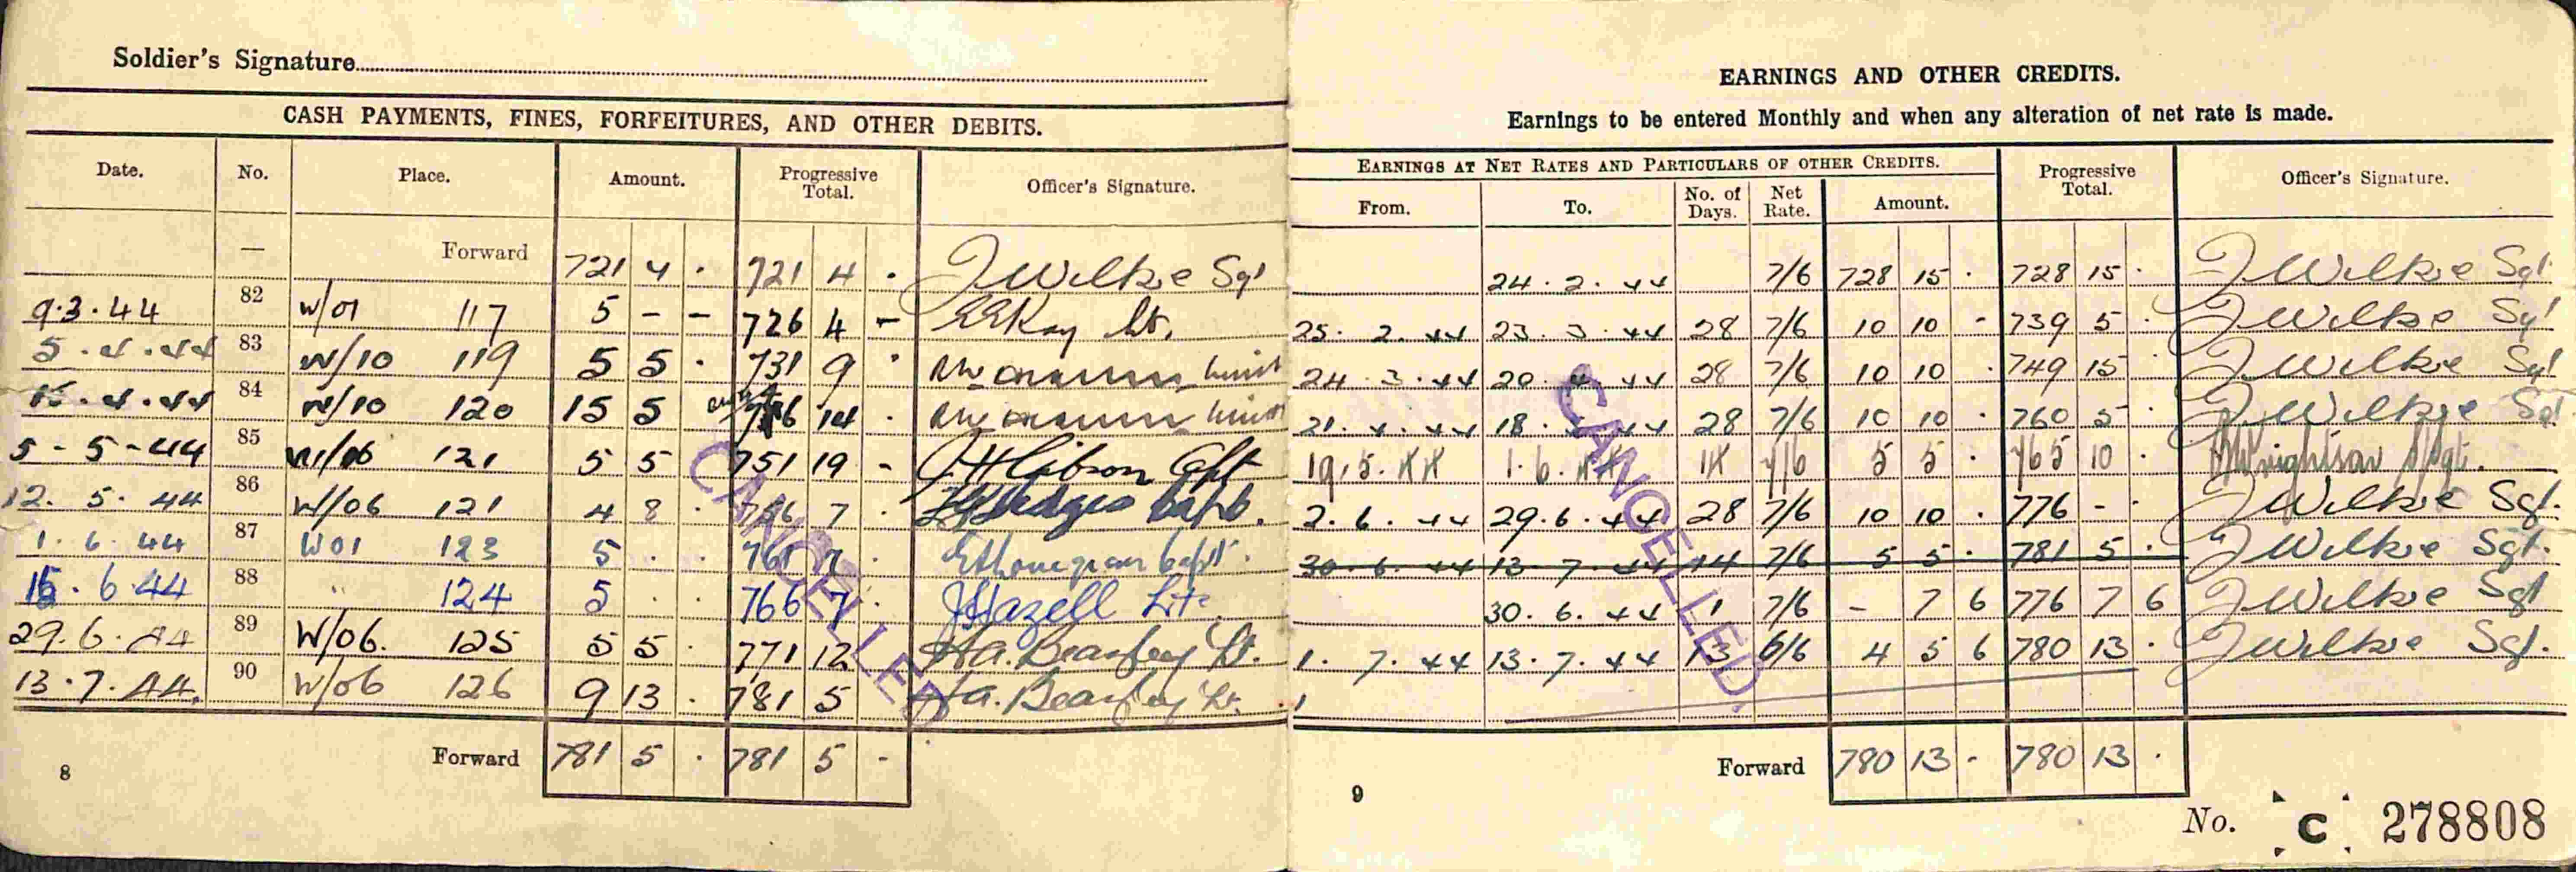 Soldier's Signature
CASH PAYMENTS, FINES, FORFEITURES, AND OTHER DEBITS.
Date. No. Place. Amount. Progressive Total. Officer's Signature.
— Forward 721 4 · 721 4 · J Wilkie Sgt
9.3.44 82 W/01 117 5 - - 726 4 - Kay Lt.
5.4.44 83 W/10 119 5 5 · 731 9 ·
15.4.44 84 W/10 120 15 5 746 14 ·
5-5-44 85 W/06 121 5 5 751 19 - Gibson Capt
12.5.44 86 W/06 121 4 8 · 756 7 · Hedges Capt.
1.6.44 87 W01 123 5 · · 761 7 · Capt.
15.6.44 88 " 124 5 · · 766 7 · J Hazell Lt
29.6.44 89 W/06. 125 5 5 · 771 12 A. Lt.
13.7.44. 90 W/06 126 9 13 · 781 5 A. Lt.
Forward 781 5 · 781 5 -
8
CANCELLED
EARNINGS AND OTHER CREDITS.
Earnings to be entered Monthly and when any alteration of net rate is made.
EARNINGS AT NET RATES AND PARTICULARS OF OTHER CREDITS. Progressive Total. Officer's Signature.
From. To. No. of Days. Net Rate. Amount.
24.2.44 7/6 728 15 · 728 15 · J Wilkie Sgt.
25.2.44 23.3.44 28 7/6 10 10 - 739 5 · J Wilkie Sgt
24.3.44 20.4.44 28 7/6 10 10 · 749 15 J Wilkie Sgt
21.4.44 18.5.44 28 7/6 10 10 · 760 5 · J Wilkie Sgt
19.5.44 1.6.44 14 7/6 5 5 · 765 10 · S/Sgt.
2.6.44 29.6.44 28 7/6 10 10 · 776 - · J Wilkie Sgt.
30.6.44 13.7.44 14 7/6 5 5 · 781 5 · J Wilkie Sgt.
30.6.44 1 7/6 - 7 6 776 7 6 J Wilkie Sgt
1.7.44 13.7.44 13 6/6 4 5 6 780 13 · J Wilkie Sgt.
Forward 780 13 - 780 13 ·
9
CANCELLED
No. C 278808